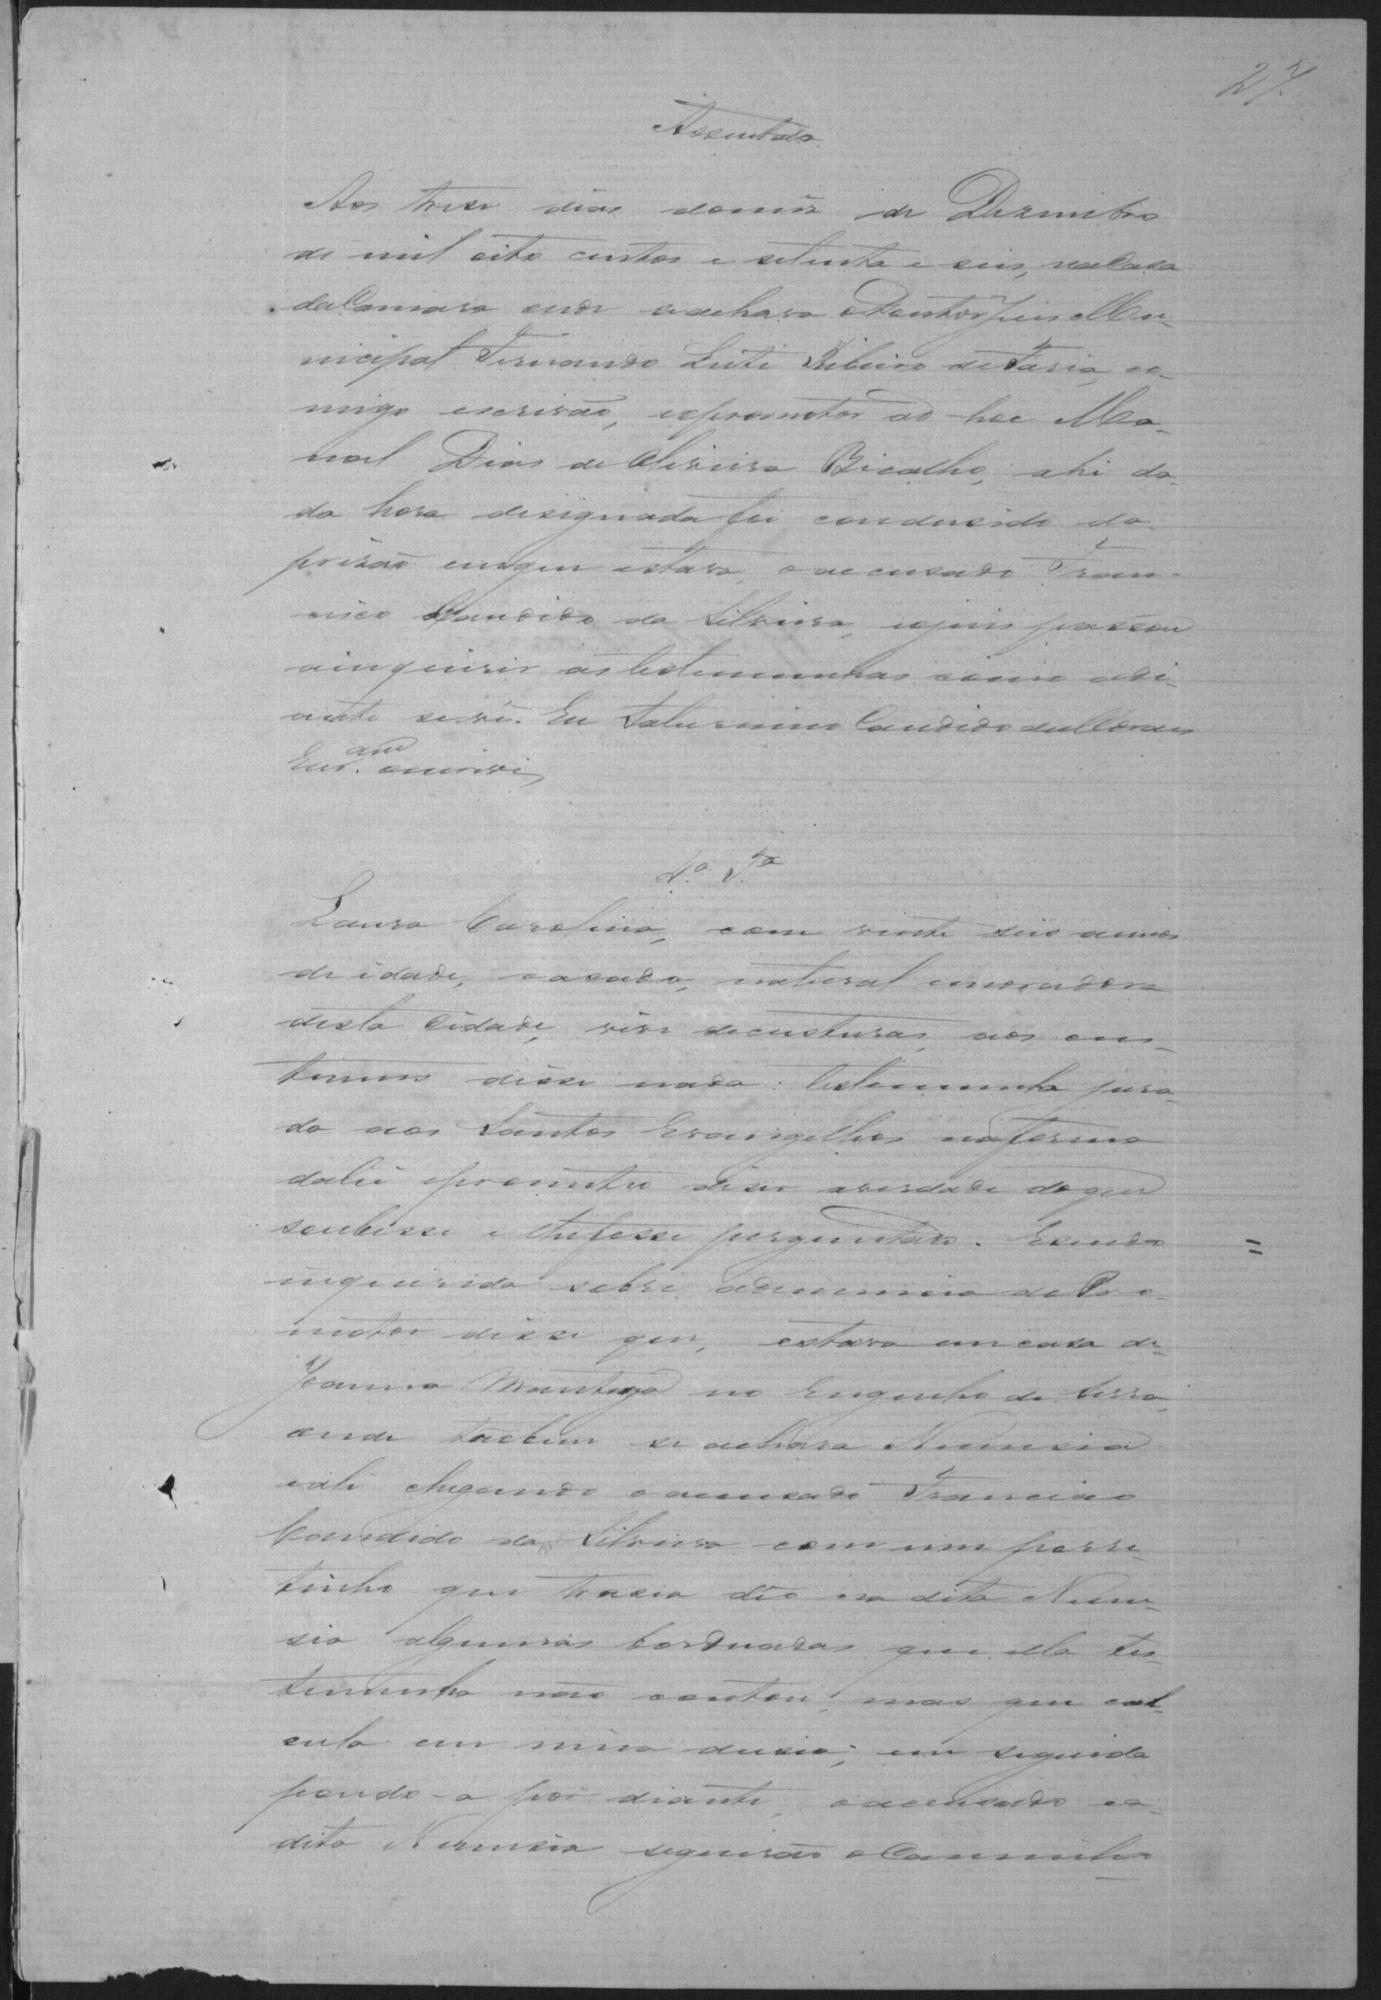 27.
Assentada
Aos trese dias do mês de Dezembro
de mil oito centos e setenta e seis, na Casa
da Camara onde se achava o Doutor Juis Mu-
nicipal Fernando Leite Ribeiro de Faria, co-
migo escrivão, e o promotor ad-hoc Ma-
noel Dias de Oliveira Bicalho, ahi da-
da hora designada foi condusido da
prisão em que estava, o accusado Fran-
cisco Candido da Silveira, e o juis passou
a inquirir as testemunhas como adi-
ante se vê. Eu Saturnino Candido de Moraes
Escr.am o escrivi
1.a T.a
Laura Carolina, com vinte seis annos
de idade, casada, natural e moradora
desta Cidade, vive de custuras, aos cus-
tumes disse nada: testemunha jura-
da aos Santos Evangelhos na forma
da lei e prometeo diser a verdade do que
soubesse e lhe fosse perguntado. E sendo
inquirida sobre a denuncia do Pro-
motor disse que, estava em casa de
Joanna Manteiga no Engenho de Serra,
onde tãobem se achava Numesia
e ali chegando o accusado Francisco
Candido da Silveira com um porre-
tinho que trasia dêo na dita Nume-
sia algumas borduadas que ella tes-
temunha não contou, mas que cal-
cula em meia dusia; em seguida
pondo-a por diante, o accusado e a
dita Numesia seguirão o Caminho